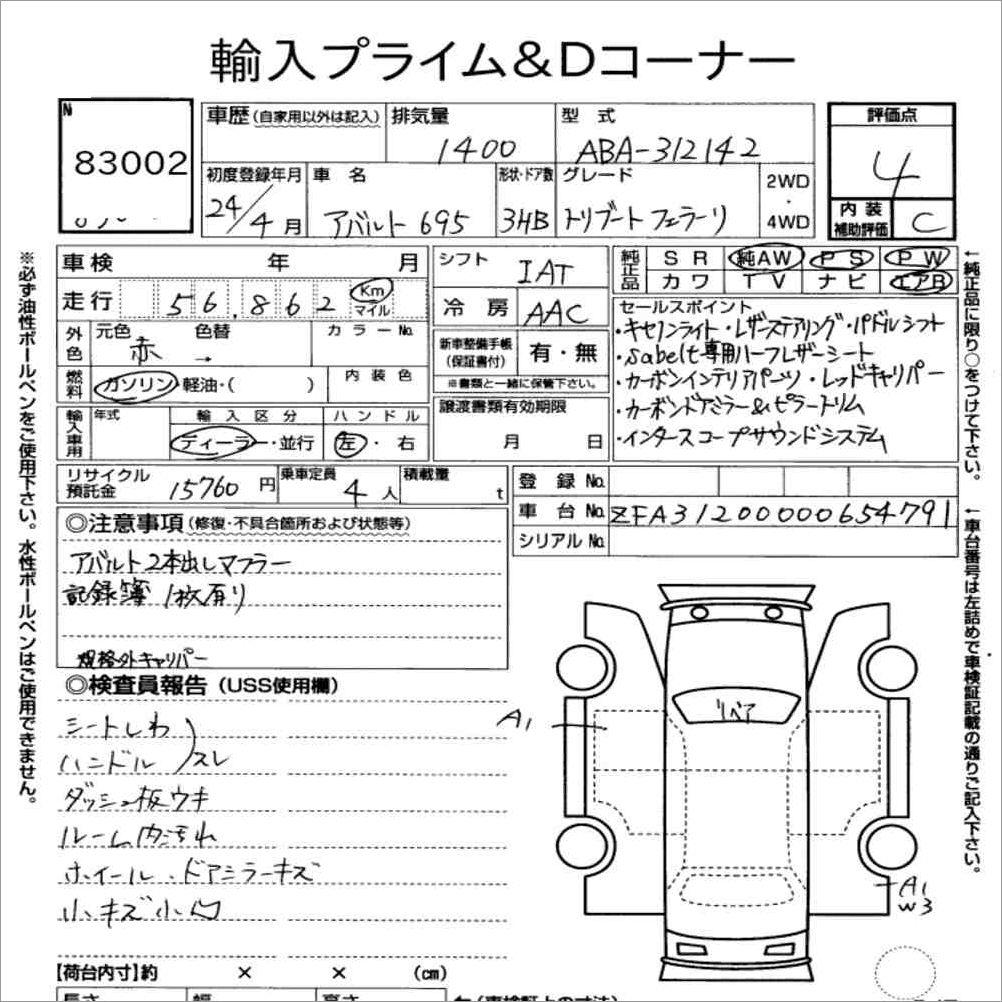 輸入プライム&Dコーナー
№
83002
車歴 (自家用以外は記入)
排気量
1400
型 式
ABA-312142
評価点
4
内装補助評価
C
初度登録年月
24/4月
車 名
アバルト695
形状・ドア数
3HB
グレード
トリブートフェラーリ
2WD
・
4WD
車検 年 月
走行 56.862 Km マイル
シフト IAT
冷房 AAC
純正品
SR 純AW PS PW
カワ TV ナビ エアB
外色
元色 赤
色替 →
カラーNo.
内装色
燃料
ガソリン・軽油・( )
新車整備手帳(保証書付) 有・無
※書類と一緒に保管下さい。
セールスポイント
・キセノンライト・レザーステアリング・パドルシフト
・sabelt専用ハーフレザーシート
・カーボンインテリアパーツ・レッドキャリパー
・カーボンドアミラー&ピラートリム
・インタースコープサウンドシステム
輸入車用
年式
輸入区分
ディーラー・並行
ハンドル
左・右
譲渡書類有効期限
月 日
リサイクル預託金 15760円
乗車定員 4人
積載量 t
登録No.
車台No. ZFA31200000654791
シリアルNo.
◎注意事項(修復・不具合箇所および状態等)
アバルト2本出しマフラー
記録簿 1枚有り
規格外キャリパー
◎検査員報告(USS使用欄)
シートしわ
ハンドル)スレ
ダッシュ板ウキ
ルーム内汚れ
ホイール・ドアミラーキズ
小キズ小凹
リペア
A1
A1
W3
【荷台内寸】約 × × (cm)
※必ず油性ボールペンをご使用下さい。水性ボールペンはご使用できません。
←純正品に限り○をつけて下さい。
←車台番号は左詰めで車検証記載の通りご記入下さい。